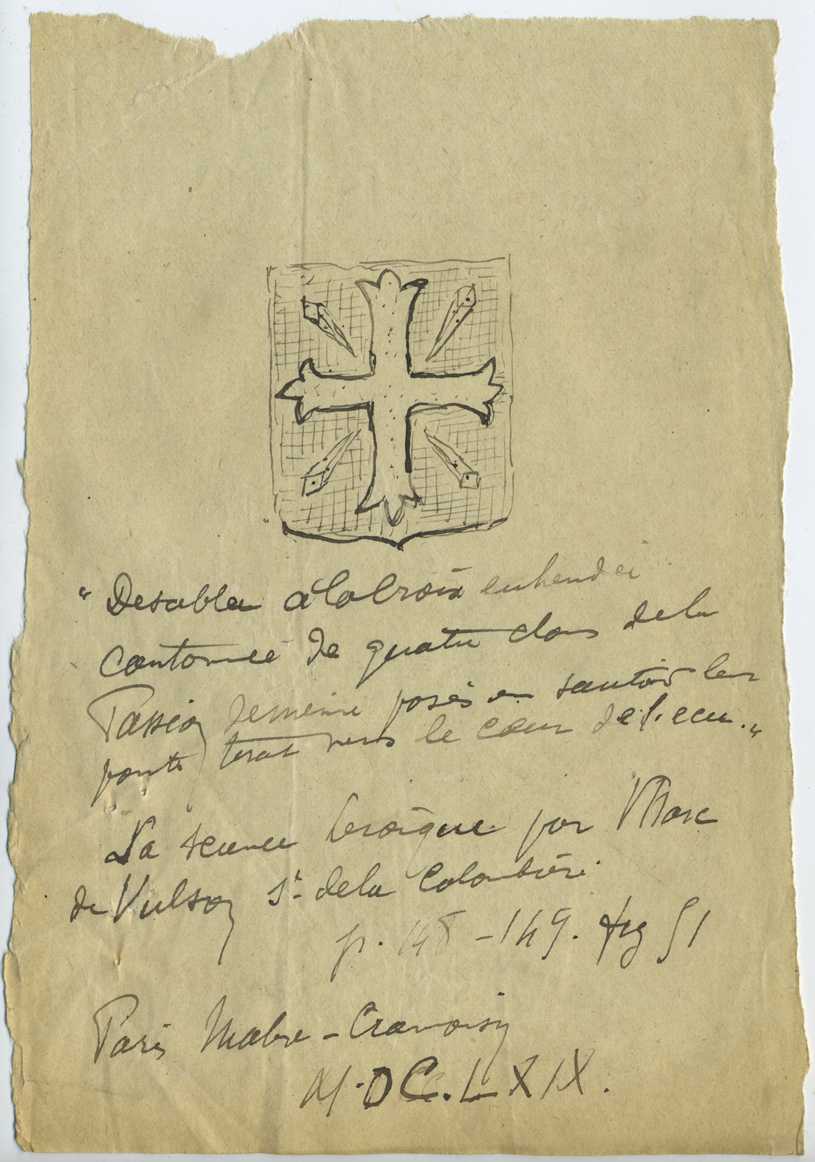 "De sable a la Croix
Cantonnée de quatre clous de la
Passion de meme posés en sautoir les
pointes vers le cœur de l'ecu."
La science heroïque par Marc
de Vulson Sr de la Colombière.
p. 148-149. fig 51
Paris Mabre-Cramoisy
M.DC.LXIX.